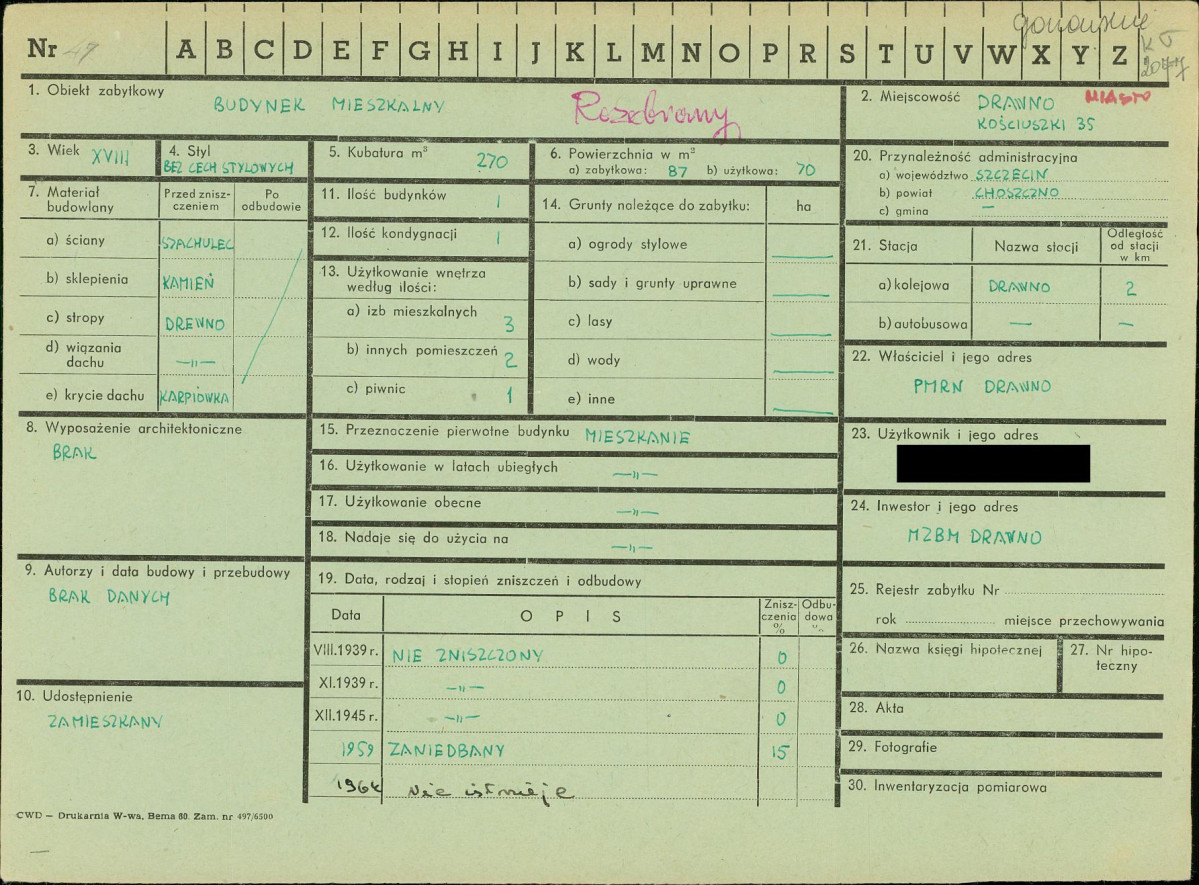 Nr 47 A B C D E F G H I J K L M N O P R S T U V W X Y Z
1. Obiekt zabytkowy
BUDYNEK MIESZKALNY
Rozebrany
2. Miejscowość DRAWNO MIASTO
KOŚCIUSZKI 35
3. Wiek XVIII
4. Styl
BEZ CECH STYLOWYCH
5. Kubatura m³ 270
6. Powierzchnia w m²
a) zabytkowa: 87 b) użytkowa: 70
20. Przynależność administracyjna
a) województwo SZCZECIN
b) powiat CHOSZCZNO
c) gmina —
7. Materiał budowlany
Przed znisz-
czeniem
Po
odbudowie
a) ściany SZACHULEC
b) sklepienia KAMIEŃ
c) stropy DREWNO
d) wiązania
dachu —"—
e) krycie dachu KARPIÓWKA
11. Ilość budynków 1
12. Ilość kondygnacji 1
13. Użytkowanie wnętrza
według ilości:
a) izb mieszkalnych 3
b) innych pomieszczeń 2
c) piwnic 1
14. Grunty należące do zabytku: ha
a) ogrody stylowe —
b) sady i grunty uprawne —
c) lasy —
d) wody —
e) inne —
21. Stacja Nazwa stacji
Odległość
od stacji
w km
a) kolejowa DRAWNO 2
b) autobusowa — —
22. Właściciel i jego adres
PMRN DRAWNO
8. Wyposażenie architektoniczne
BRAK
15. Przeznaczenie pierwotne budynku MIESZKANIE
16. Użytkowanie w latach ubiegłych —"—
17. Użytkowanie obecne —"—
18. Nadaje się do użycia na —"—
23. Użytkownik i jego adres
24. Inwestor i jego adres
MZBM DRAWNO
9. Autorzy i data budowy i przebudowy
BRAK DANYCH
19. Data, rodzaj i stopień zniszczeń i odbudowy
Data OPIS
Znisz-
czenia
%
Odbu-
dowa
%
VIII.1939 r. NIE ZNISZCZONY 0
XI.1939 r. —"— 0
XII.1945 r. —"— 0
1959 ZANIEDBANY 15
1964 Nie istnieje
10. Udostępnienie
ZAMIESZKANY
25. Rejestr zabytku Nr
rok miejsce przechowywania
26. Nazwa księgi hipotecznej
27. Nr hipo-
teczny
28. Akta
29. Fotografie
30. Inwentaryzacja pomiarowa
CWD — Drukarnia W-wa, Bema 60. Zam. nr 497/6500